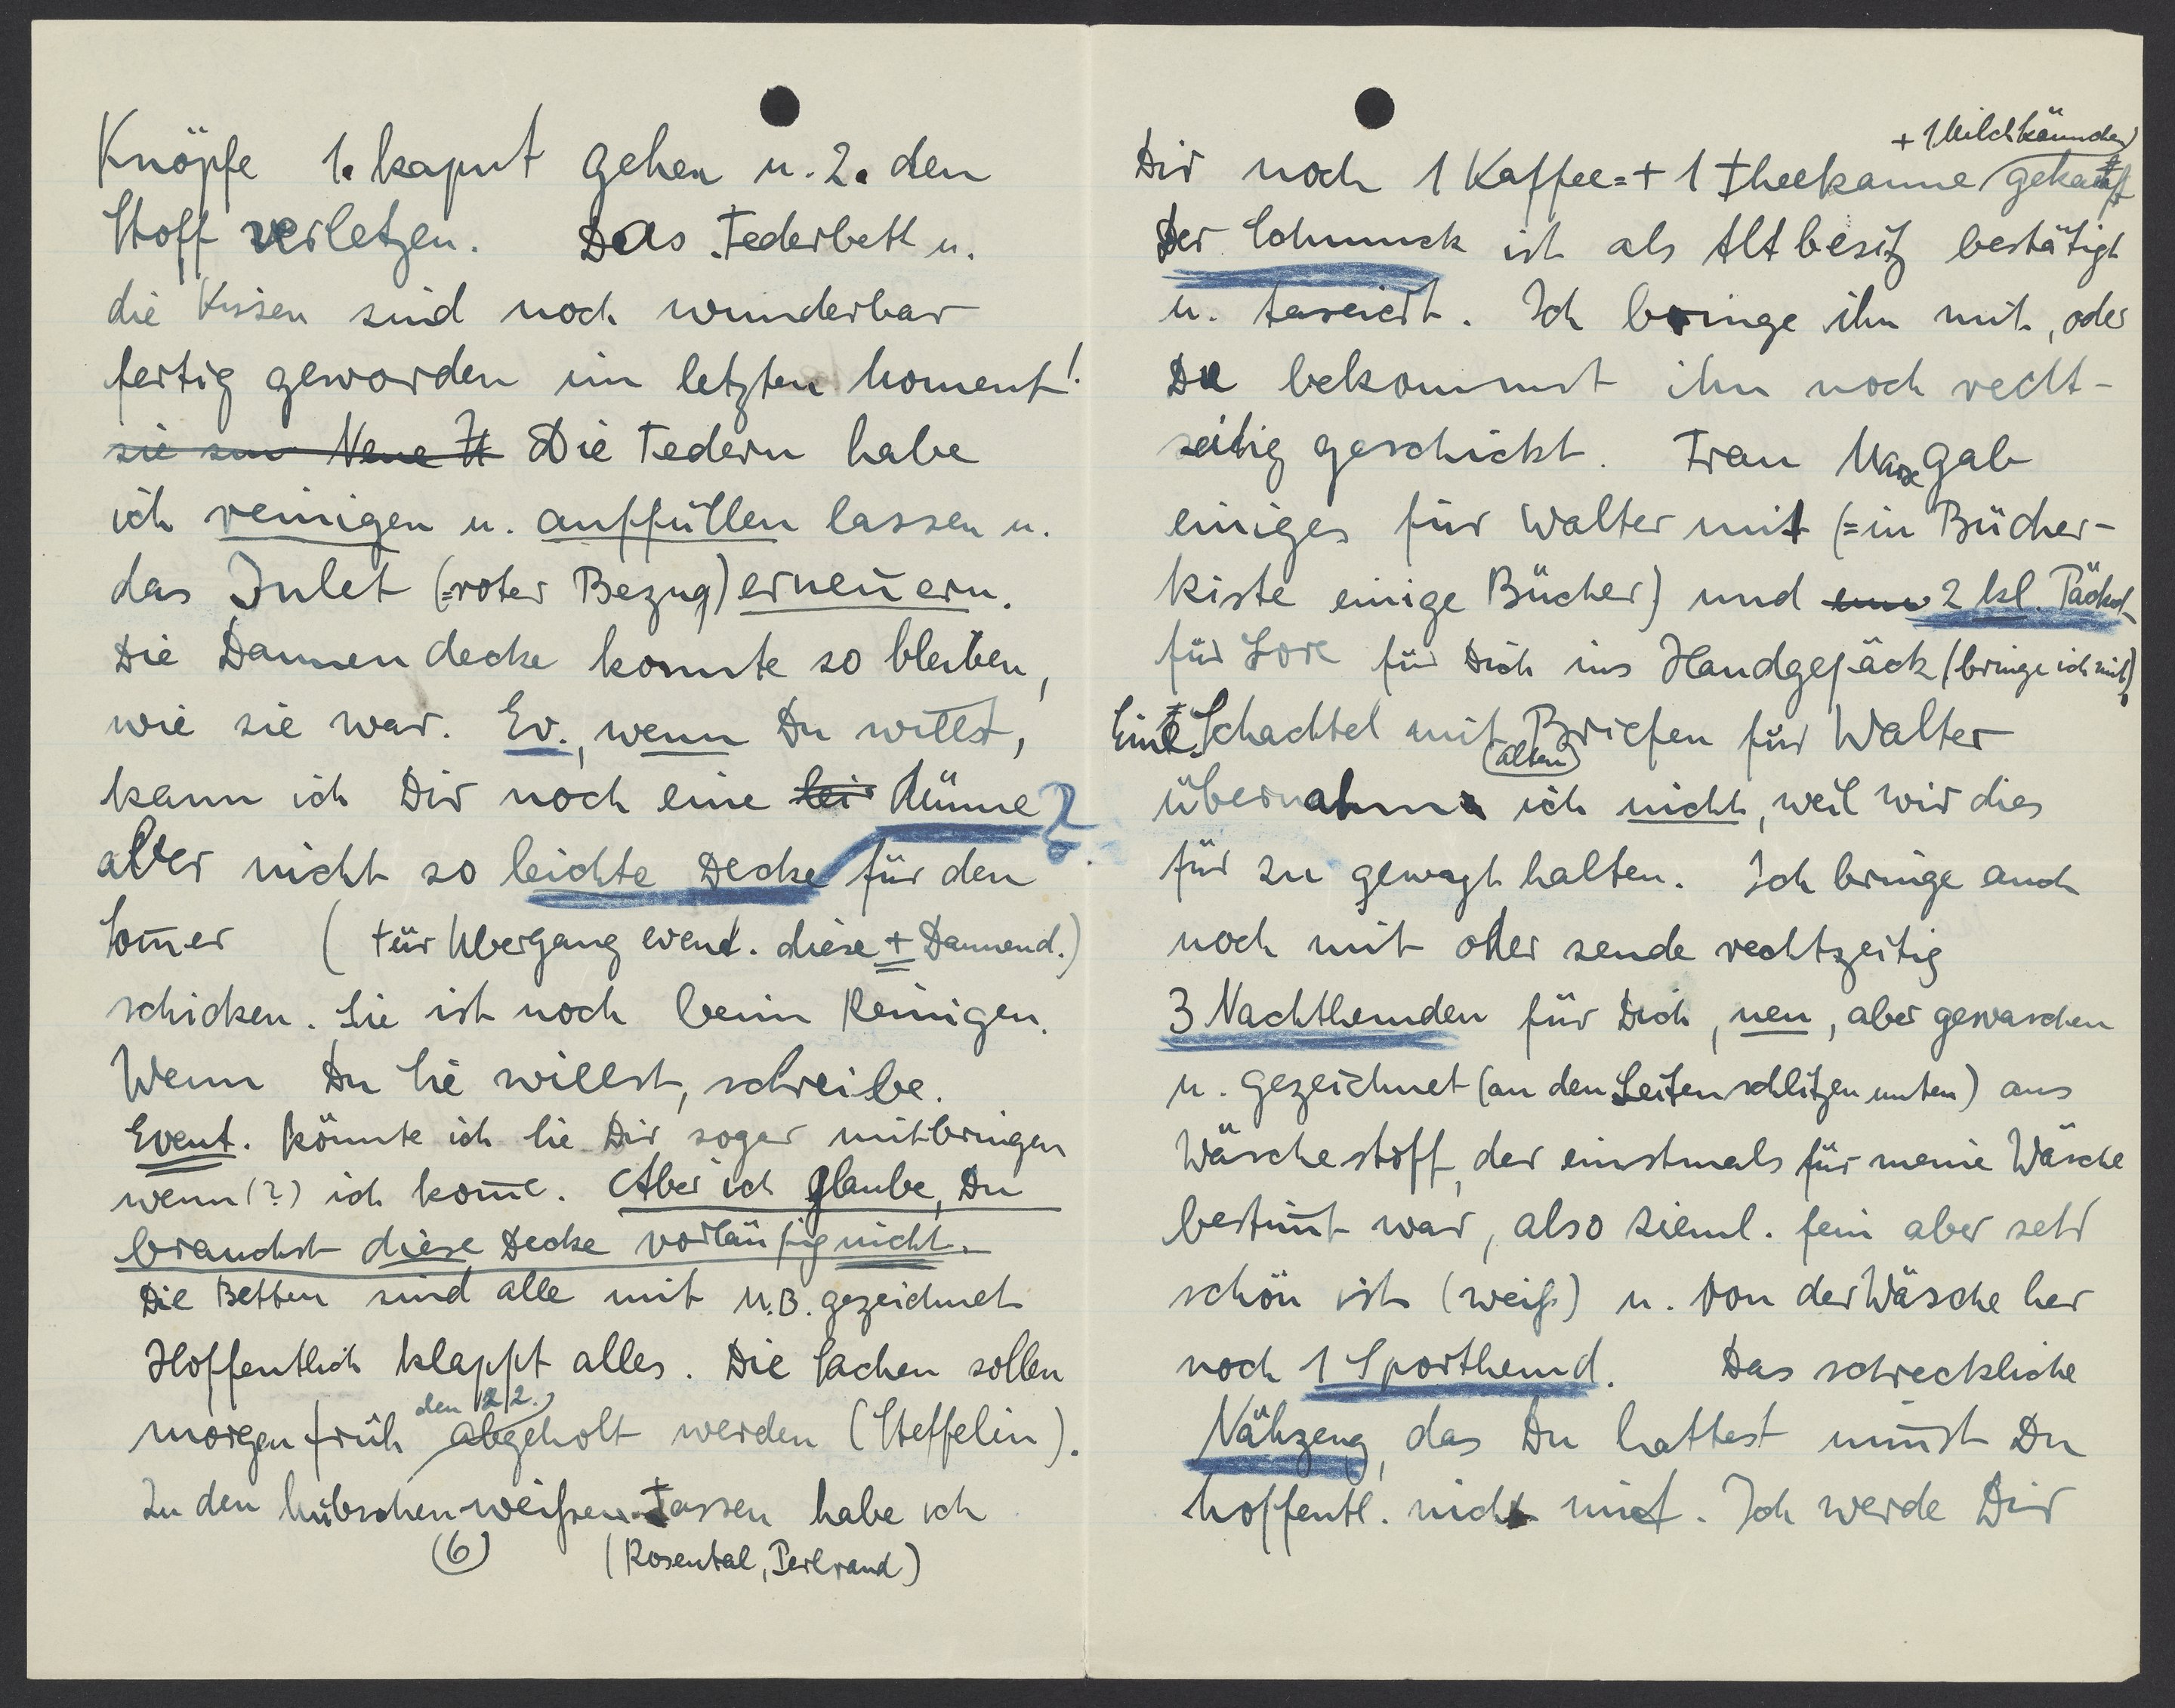 Knöpfe 1. kaput gehen u. 2. den
Stoff verletzen. Das Federbett u.
die Kissen sind noch wunderbar
fertig geworden im letzten Moment!
Die Federn habe
ich reinigen u. auffüllen lassen u.
das Inlet (=roter Bezug) erneuern.
Die Daunendecke konnte so bleiben,
wie sie war. Ev., wenn Du willst,
kann ich Dir noch eine lei dünne ?
aber nicht so leichte Decke für den
Som̅er (für Übergang event. diese + Daunend.)
schicken. Sie ist noch beim Reinigen.
Wenn Du Sie willst, schreibe.
Event. könnte ich Sie Dir sogar mitbringen
wenn (?) ich kom̅e. Aber ich glaube, Du
brauchst diese Decke vorläufig nicht.
Die Betten sind alle mit M.B. gezeichnet
Hoffentlich klappt alles. Die Sachen sollen
den 22.
morgen früh abgeholt werden (Steffelin).
Zu den hübschen weißen Tassen habe ich
(6) (Rosental, Perlrand)
+ 1 Milchkännchen
Dir noch 1 Kaffee= + 1 Theekanne gekauft
Der Schmuck ist als Altbesitz bestätigt
u. taxiert. Ich bringe ihn mit, oder
Du bekommst ihn noch recht-
zeitig geschickt. Frau gab
einiges für Walter mit (=in Bücher-
kiste einige Bücher) und 2 kl. Päckch.
für Lore für Dich ins Handgepäck (bringe ich mit).
Eine Schachtel mit Briefen für Walter
(alten)
übernahm ich nicht, weil wir dies
für zu gewagt halten. Ich bringe auch
noch mit oder sende rechtzeitig
3 Nachthemden für Dich, neu, aber gewaschen
u. gezeichnet (an den Seitenschlitzen unten) aus
Wäschestoff, der einstmals für meine Wäsche
bestim̅t war, also zieml. fein aber sehr
schön ist (weiß) u. von der Wäsche her
noch 1 Sporthemd. Das schreckliche
Nähzeug, das Du hattest nim̅st Du
hoffentl. nicht mit. Ich werde Dir